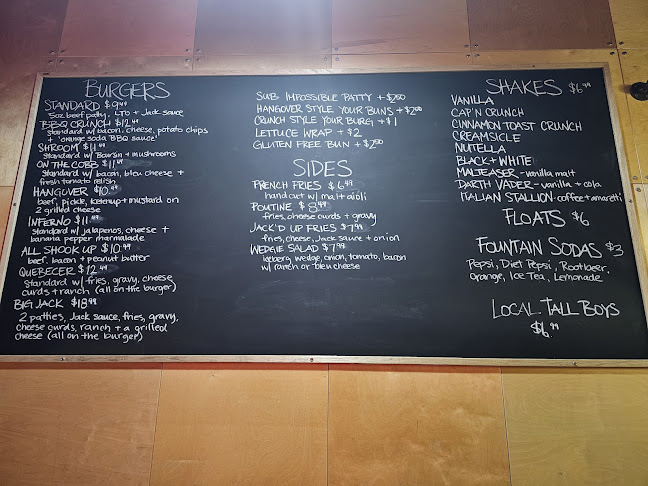 BURGERS
STANDARD $9.49
5oz beef patty, LTO + Jack sauce
BBQ CRUNCH $12.49
Standard w/ bacon, cheese, potato chips
+ 'orange soda BBQ sauce'
SHROOM $11.49
Standard w/ Boursin + mushrooms
ON THE COBB $11.49
Standard w/ bacon, bleu cheese +
fresh tomato relish
HANGOVER $10.49
beef, pickle, ketchup + mustard on
2 grilled cheese
INFERNO $11.49
Standard w/ jalapenos, cheese +
banana pepper marmalade
ALL SHOOK UP $10.99
beef, bacon + peanut butter
QUEBECER $12.49
Standard w/ fries, gravy, cheese
curds + ranch (all on the burger)
BIG JACK $18.99
2 patties, Jack sauce, fries, gravy,
cheese curds, ranch + a grilled
cheese (all on the burger)
SUB IMPOSSIBLE PATTY + $2.50
HANGOVER STYLE YOUR BUNS + $2.00
CRUNCH STYLE YOUR BURG + $1
LETTUCE WRAP + $2
GLUTEN FREE BUN + $2.50
SIDES
FRENCH FRIES $6.49
hand cut w/ malt aioli
POUTINE $8.49
fries, cheese curds + gravy
JACK'D UP FRIES $7.99
fries, cheese, Jack sauce + onion
WEDGIE SALAD $7.99
iceberg wedge, onion, tomato, bacon
w/ ranch or bleu cheese
SHAKES $6.99
VANILLA
CAP'N CRUNCH
CINNAMON TOAST CRUNCH
CREAMSICLE
NUTELLA
BLACK + WHITE
MALTEASER - vanilla malt
DARTH VADER - vanilla + cola
ITALIAN STALLION - coffee + amaretti
FLOATS $6
FOUNTAIN SODAS $3
Pepsi, Diet Pepsi, Rootbeer,
Orange, Ice Tea, Lemonade
LOCAL TALL BOYS
$6.99